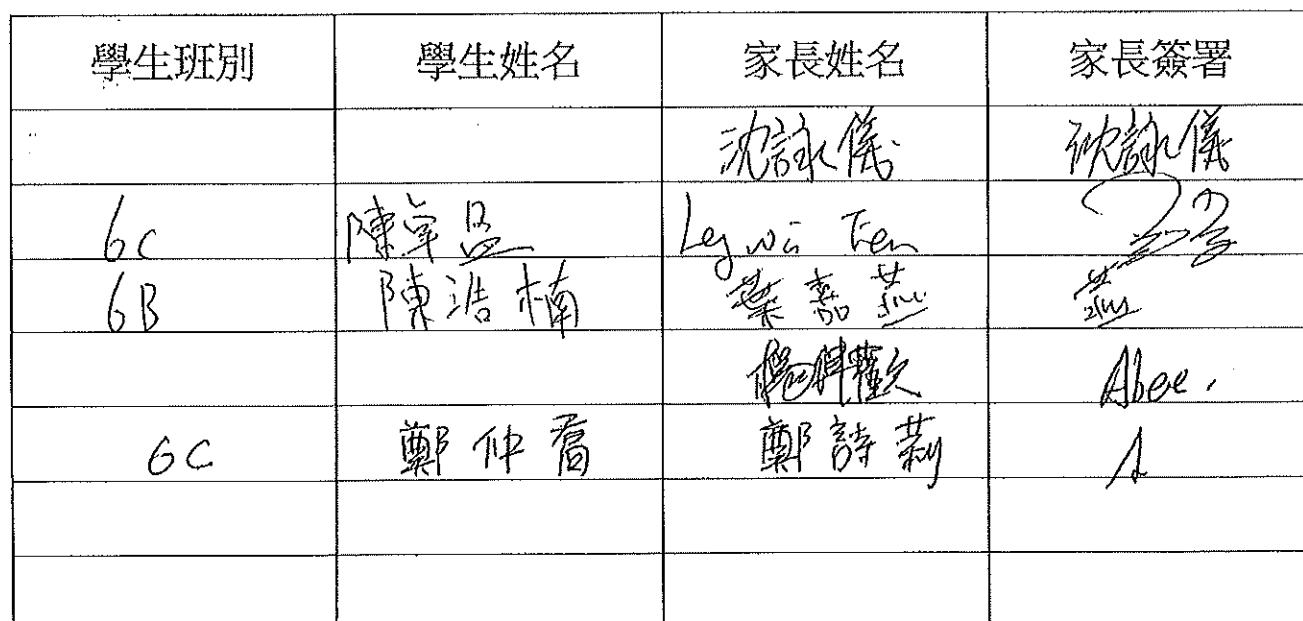 學生班別 學生姓名 家長姓名 家長簽署
沈詠儀 沈詠儀
6C 陳卓
6B 陳浩楠 葉嘉燕 燕
歡 Abee.
6C 鄭仲喬 鄭詩莉